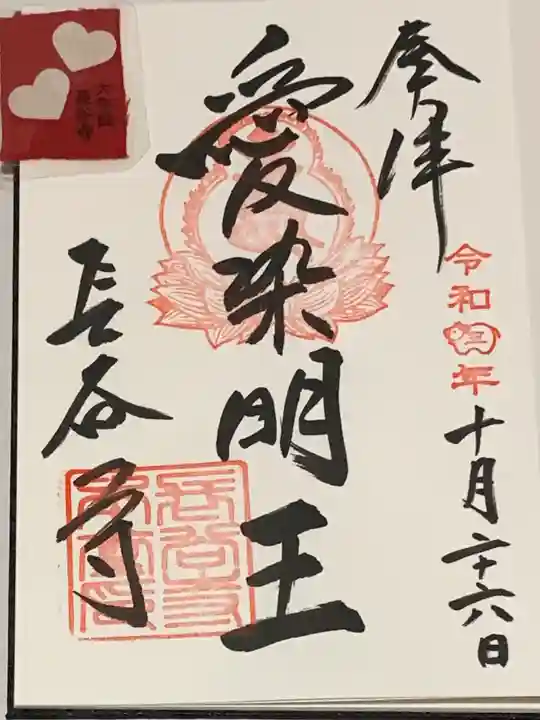 奉拝
令和三年十月二十六日
愛染明王
長谷寺